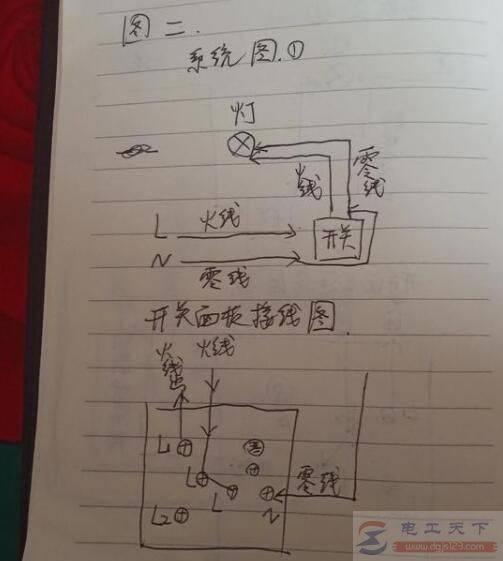 图二.
系统图.①
灯
火线
零线
L 火线
开关
N 零线
开关面板接线图.
火线出 火线
L
L
L
零线
L2
N
电工天下
www.dgjs123.com